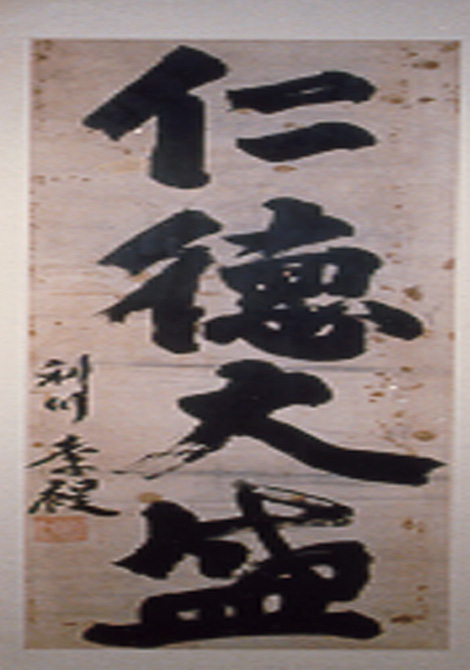 仁德大盛
利川
李